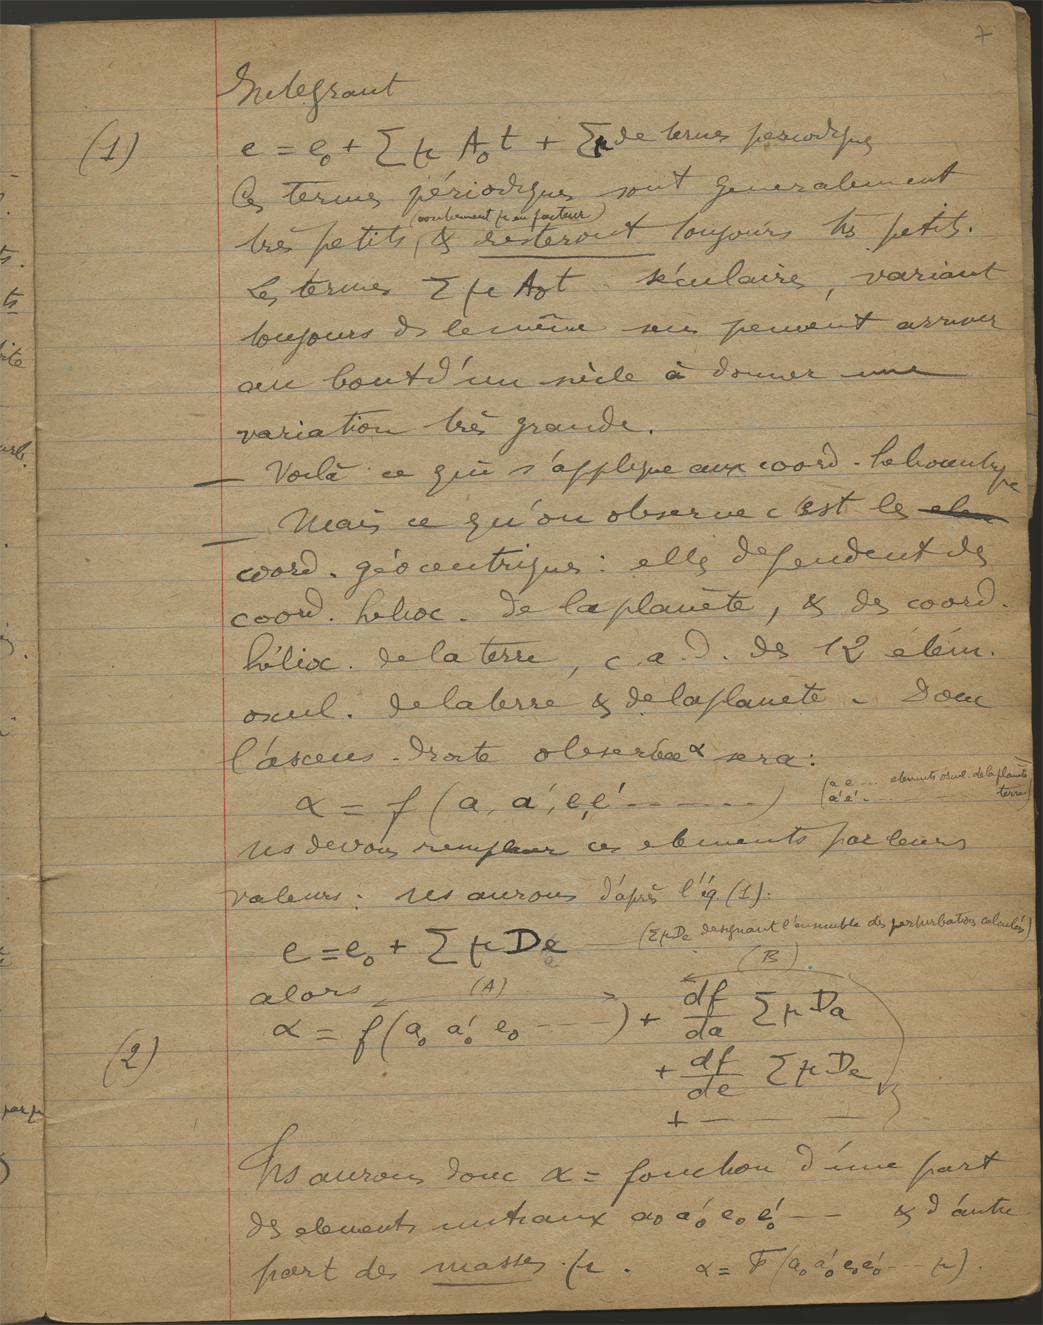 7
Integrant
(1) e = e₀ + Σ μ A₀ t + Σμ de termes periodiques
Ces termes périodiques sont generalement
(contiennent μ en facteur)
très petits, & resteront toujours trs petits.
Les termes Σ μ A₀t séculaires, variant
toujours ds le même sens peuvent arriver
au bout d'un siècle à donner une
variation très grande.
— Voilà ce qui s'applique aux coord. heliocentriques
— Mais ce qu'on observe c'est les elem
coord. géocentriques : elles dependent des
coord. helioc. de la planète, & des coord.
hélioc. de la terre, c.a.d. des 12 élém.
oscul. de la terre & de la planète. Donc
l'ascens. droite observée α sera :
α = f (a, a', e, e' - - - - - -) (a e ... elements oscul. de la planète
a' e' ... terre)
ns devons remplacer ces elements par leurs
valeurs : ns aurons d'après l'éq. (1) :
e = e₀ + Σ μ De (ΣμDe designant l'ensemble des perturbations calculées)
(B)
alors (A)
(2) α = f (a₀ a'₀ e₀ - - - -) + df/da Σ μ Da
+ df/de Σ μ De
+ - - - -
Ns aurons donc α = fonction d'une part
des elements initiaux a₀ a'₀ e₀ e'₀ - - & d'autre
part des masses μ. α = F (a₀ a'₀ e₀ e'₀ - - - μ).